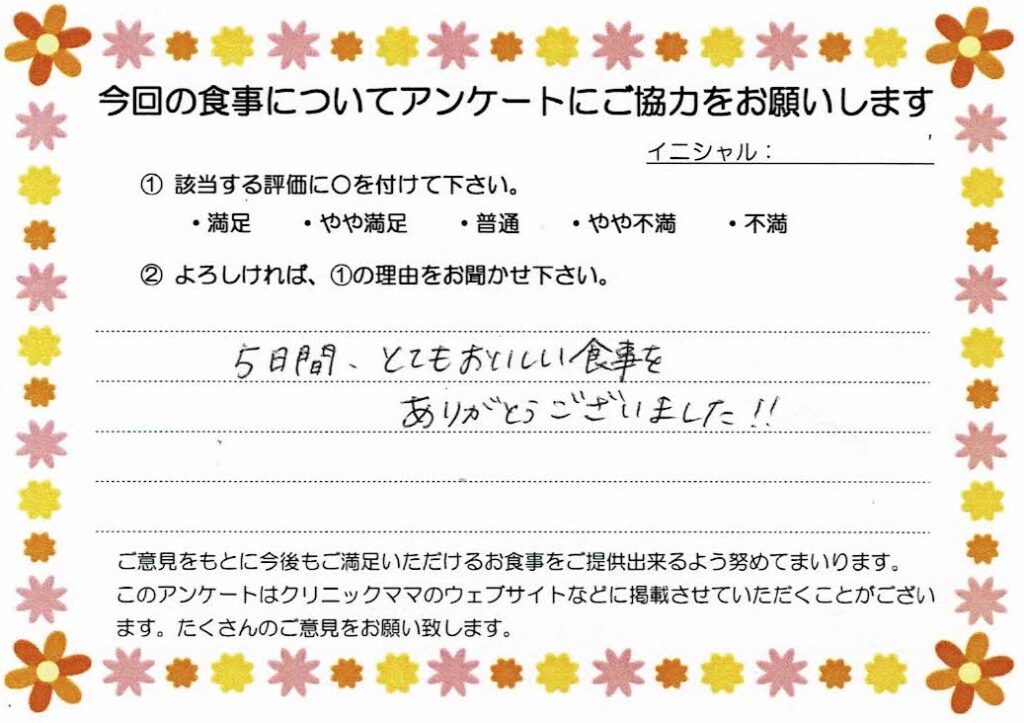 今回の食事についてアンケートにご協力をお願いします
イニシャル：
① 該当する評価に〇を付けて下さい。
・満足 ・やや満足 ・普通 ・やや不満 ・不満
② よろしければ、①の理由をお聞かせ下さい。
5日間、とてもおいしい食事を
ありがとうございました!!
ご意見をもとに今後もご満足いただけるお食事をご提供出来るよう努めてまいります。
このアンケートはクリニックママのウェブサイトなどに掲載させていただくことがござい
ます。たくさんのご意見をお願い致します。